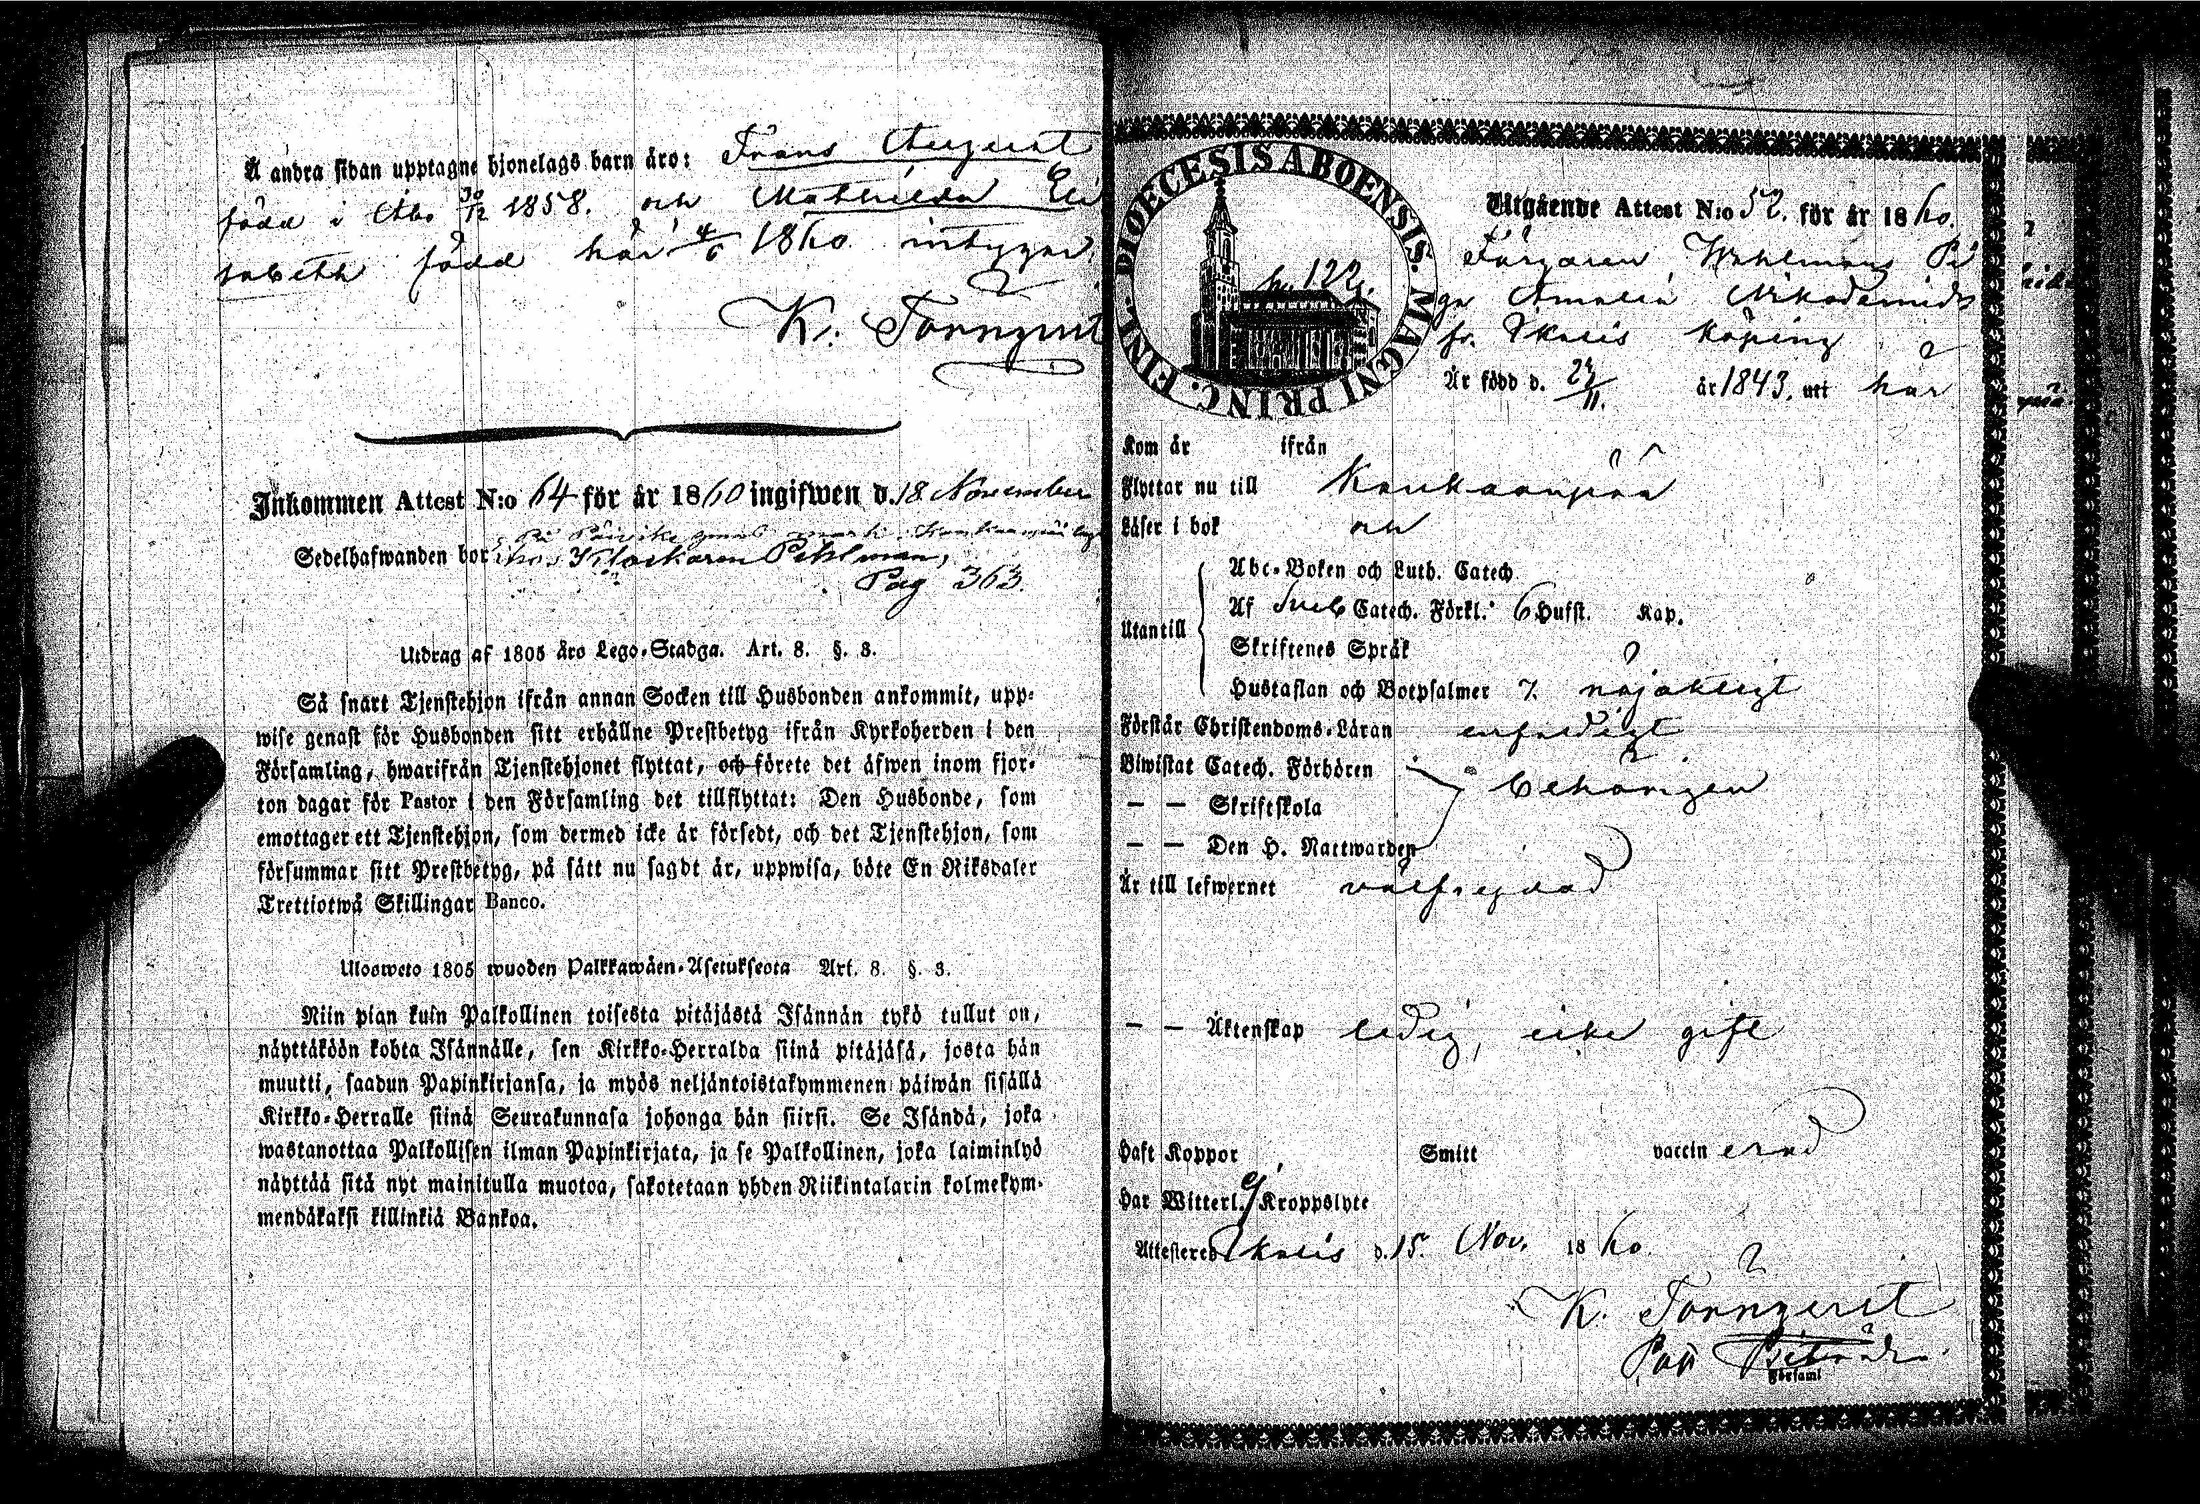 Å andra sidan upptagne hjonelags barn äro: Frans August
född i Åbo 30/12 1858. och Mathilda Eli
sabeth född här 4/6 1860 intygar,
K. Törnqvist
Inkommen Attest N:o 64 för år 1860 ingifwen d. 18 November
På
Sedelhafwanden bor hos Klockaren Pihlman,
Pag 363.
Utdrag af 1805 åro Lego-Stadga. Art. 8. §. 3.
Så snart Tjenstehjon ifrån annan Socken till Husbonden ankommit, upp-
wise genast för Husbonden sitt erhållne Prestbetyg ifrån Kyrkoherden i den
Församling, hwarifrån Tjenstehjonet flyttat, och förete det äfwen inom fjor-
ton dagar för Pastor i den Församling det tillflyttat: Den Husbonde, som
emottager ett Tjenstehjon, som dermed icke är försedt, och det Tjenstehjon, som
försummar sitt Prestbetyg, på sätt nu sagdt är, uppwisa, böte En Riksdaler
Trettiotwå Skillingar Banco.
Ulosweto 1805 wuoden Palkkawäen-Asetuksesta Art. 8. §. 3.
Niin pian kuin Palkollinen toisesta pitäjästä Isännän tykö tullut on,
näyttäköön kohta Isännälle, sen Kirkko-Herralda siinä pitäjäsä, josta hän
muutti, saadun Papinkirjansa, ja myös neljäntoistakymmenen päiwän sisällä
Kirkko-Herralle siinä Seurakunnasa johonga hän siirsi. Se Isändä, joka
wastanottaa Palkollisen ilman Papinkirjata, ja se Palkollinen, joka laiminlyö
näyttää sitä nyt mainitulla muotoa, sakotetaan yhden Riikintalarin kolmekym-
mendäkaksi killinkiä Bankoa.
DIOECESIS ABOENSIS. MAGNI PRINC. FINL.
p. 122.
Utgående Attest N:o 52. för år 1860.
Färgaren Wahlmans Pi
ga Amalia Nikodemidr
fr. Ikalis köping
Är född d. 24/11. år 1843. uti här
Kom år ifrån
Flyttar nu till Kankaanpää
Läser i bok
Utantill
Abc-Boken och Luth. Catech
Af Sveb Catech. Förkl. 6 Hufst. Kap.
Skriftenes Språk
Hustaflan och Botpsalmer 7. nöjaktigt
Förstår Christendoms-Läran enfaldigt
Biwistat Catech. Förhören
— — Skriftskola behörigen
— — Den H. Nattwarden
Är till lefwernet välfrejdad
— — Äktenskap ledig, icke gift
Haft Koppor Smitt vaccin erad
Har Witterl. ej Kroppslyte
Attesteres Ikalis d. 15. Nov. 1860
K. Törnqvist
Församl